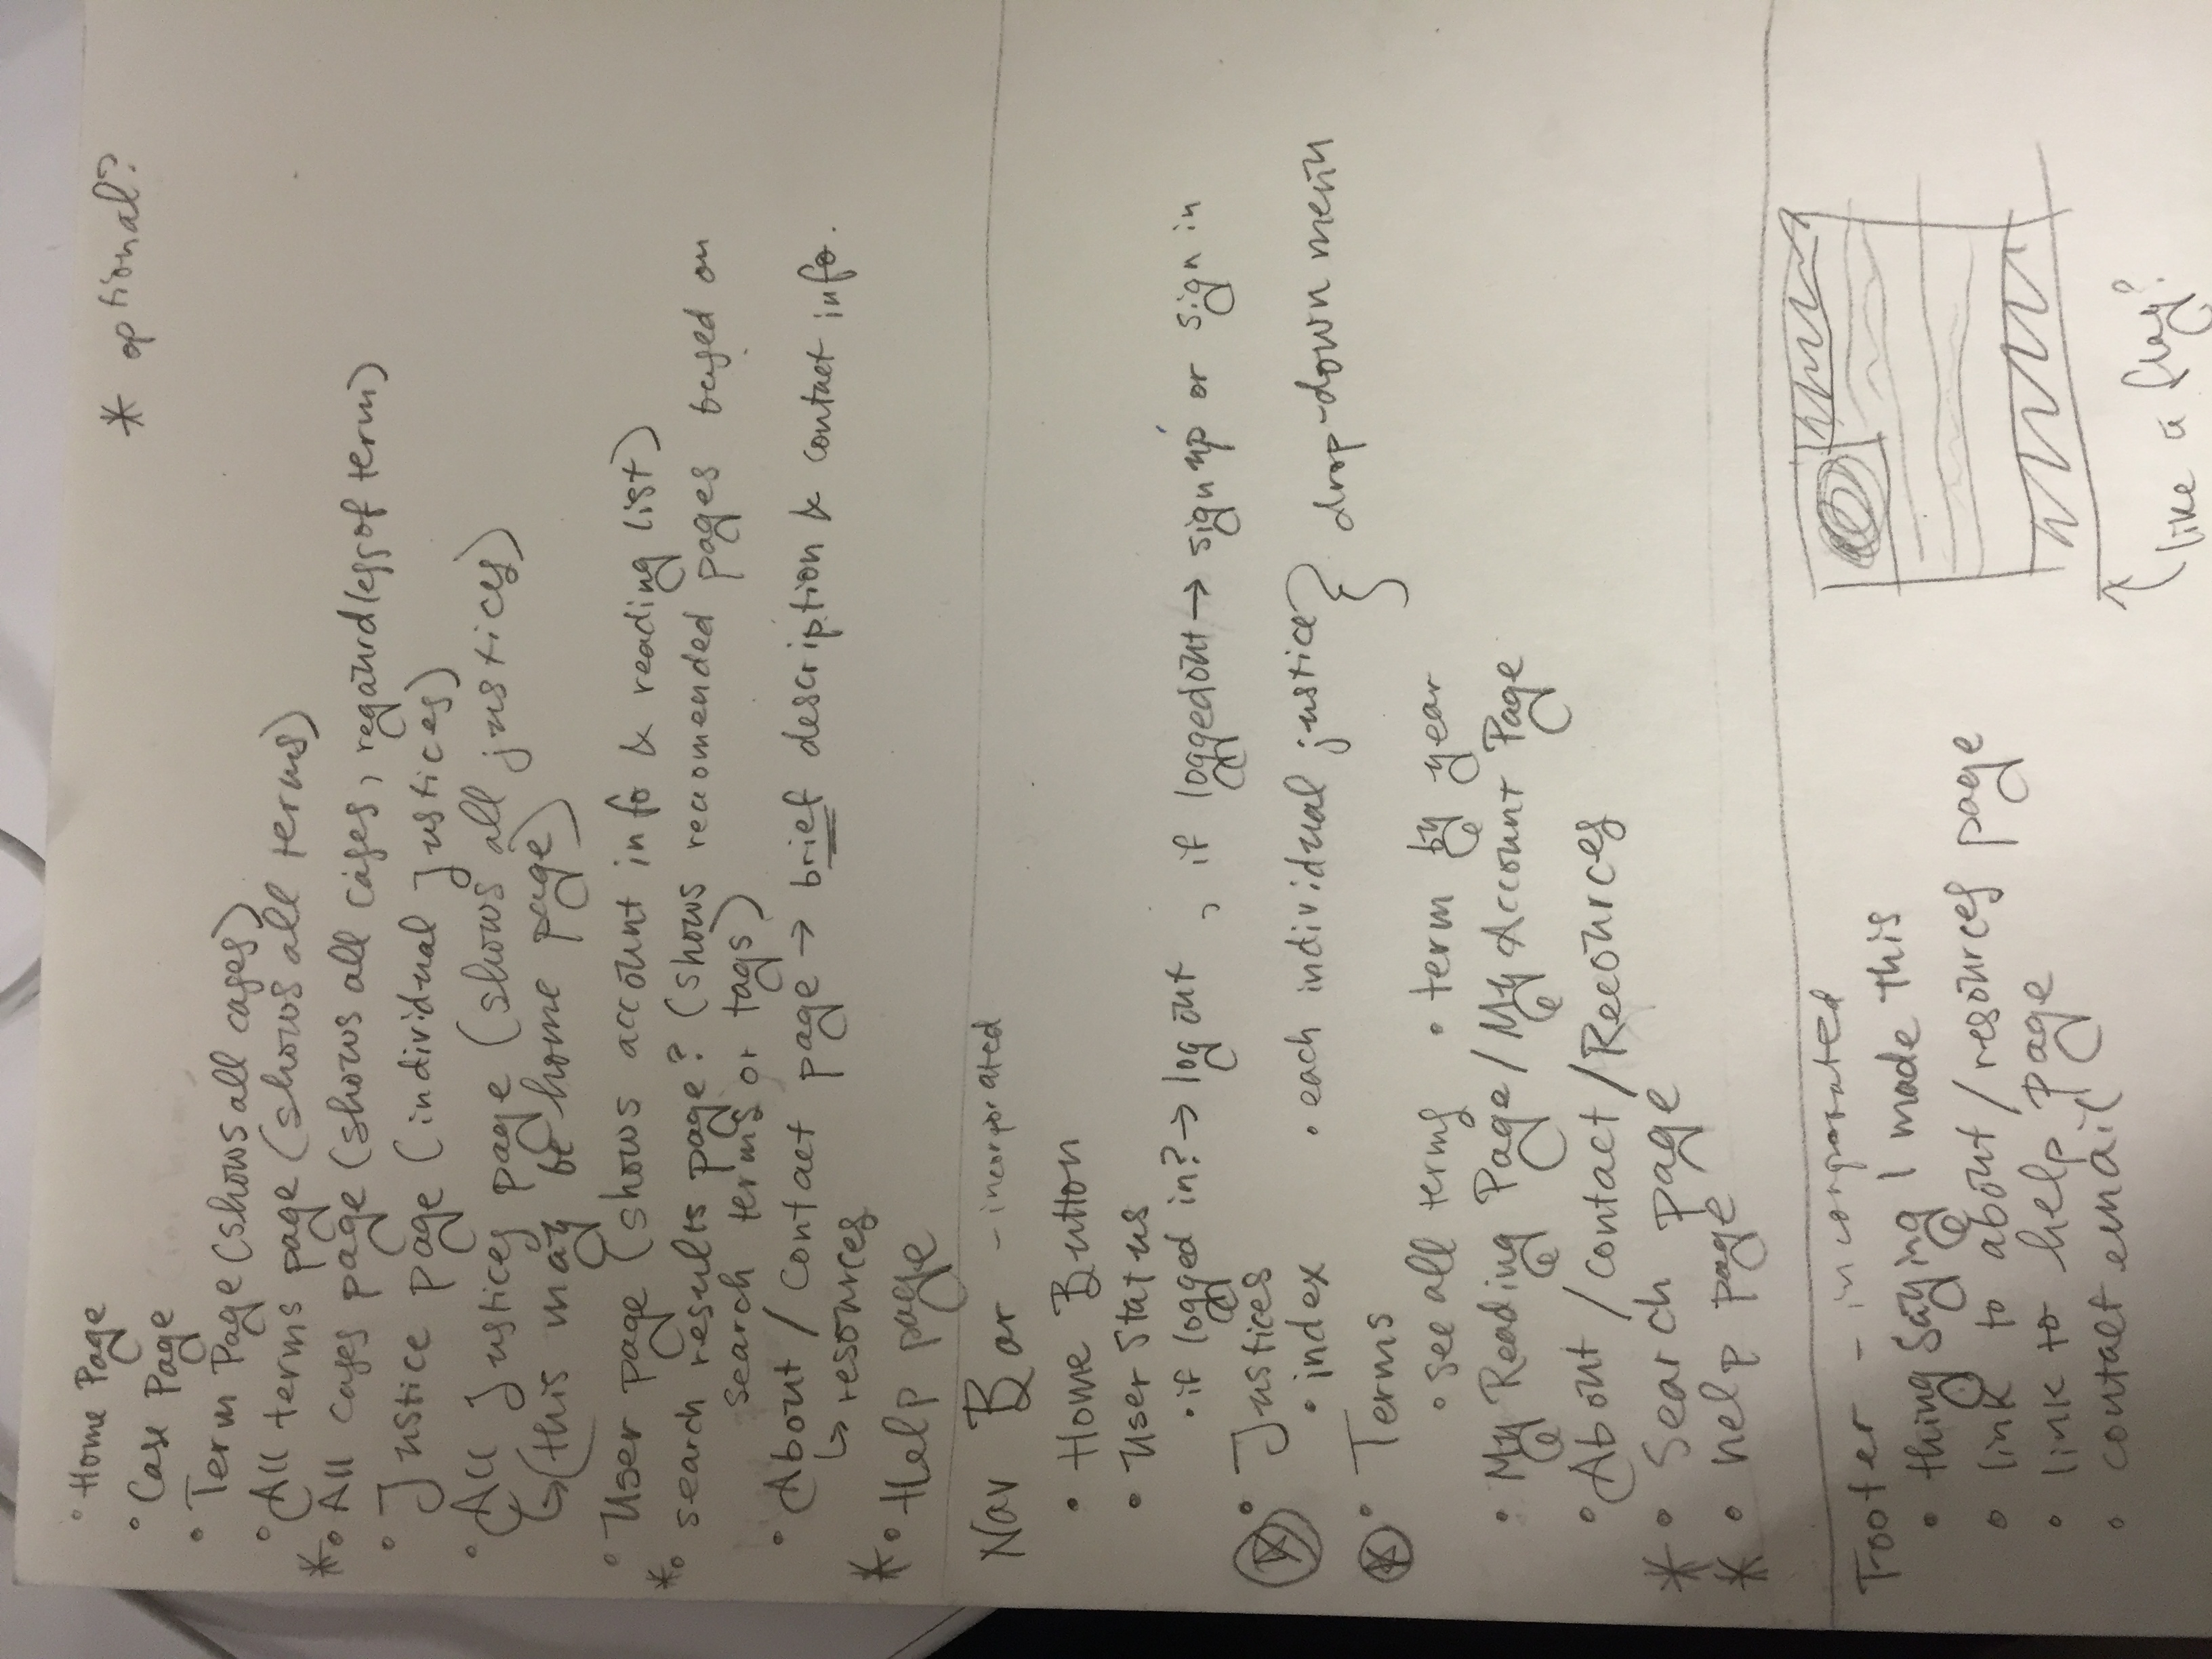 • Home Page
* optional?
• Case Page
• Term Page (shows all cases)
• All terms page (shows all terms)
*• All cases page (shows all cases, regaurdless of term)
• Justice page (individual justices)
• All Justices page (shows all justices)
↳ (this may be home page)
• User page (shows account info & reading list)
*• search results page? (shows reccomended pages based on
search terms or tags)
• About / Contact page → brief description & contact info.
↳ resources
*• Help page
Nav Bar - incorporated
• Home Button
• User Status
• if logged in? → log out , if logged out → sign up or sign in
• Justices
• index • each individual justice } drop-down menu
• Terms
• see all terms • term by year
• My Reading Page / My Account Page
• About / Contact / Recources
* • Search page
* • help page
Footer - incorporated
• thing saying I made this
• link to about / resources page
• link to help page
• contact email
like a flag?